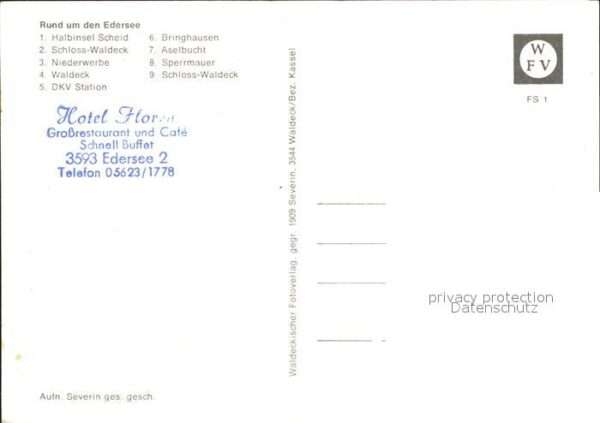 Rund um den Edersee
1. Halbinsel Scheid
2. Schloss-Waldeck
3. Niederwerbe
4. Waldeck
5. DKV Station
6. Bringhausen
7. Aselbucht
8. Sperrmauer
9. Schloss-Waldeck
Hotel
Großrestaurant und Café
Schnell Buffet
3593 Edersee 2
Telefon 05623/1778
Aufn. Severin ges. gesch.
Waldeckischer Fotoverlag, gegr. 1909 Severin, 3544 Waldeck/Bez. Kassel
W
FV
FS 1
privacy protection
Datenschutz